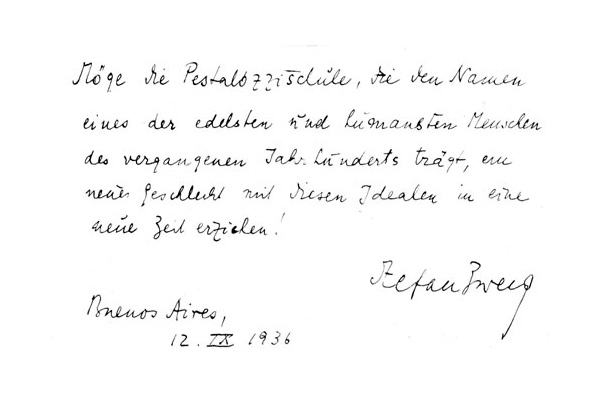 Möge die Pestalozzischule, die den Namen
eines der edelsten und humansten Menschen
des vergangenen Jahrhunderts trägt, ein
neues Geschlecht mit diesen Idealen in eine
neue Zeit erziehen!
Stefan Zweig
Buenos Aires,
12. IX 1936